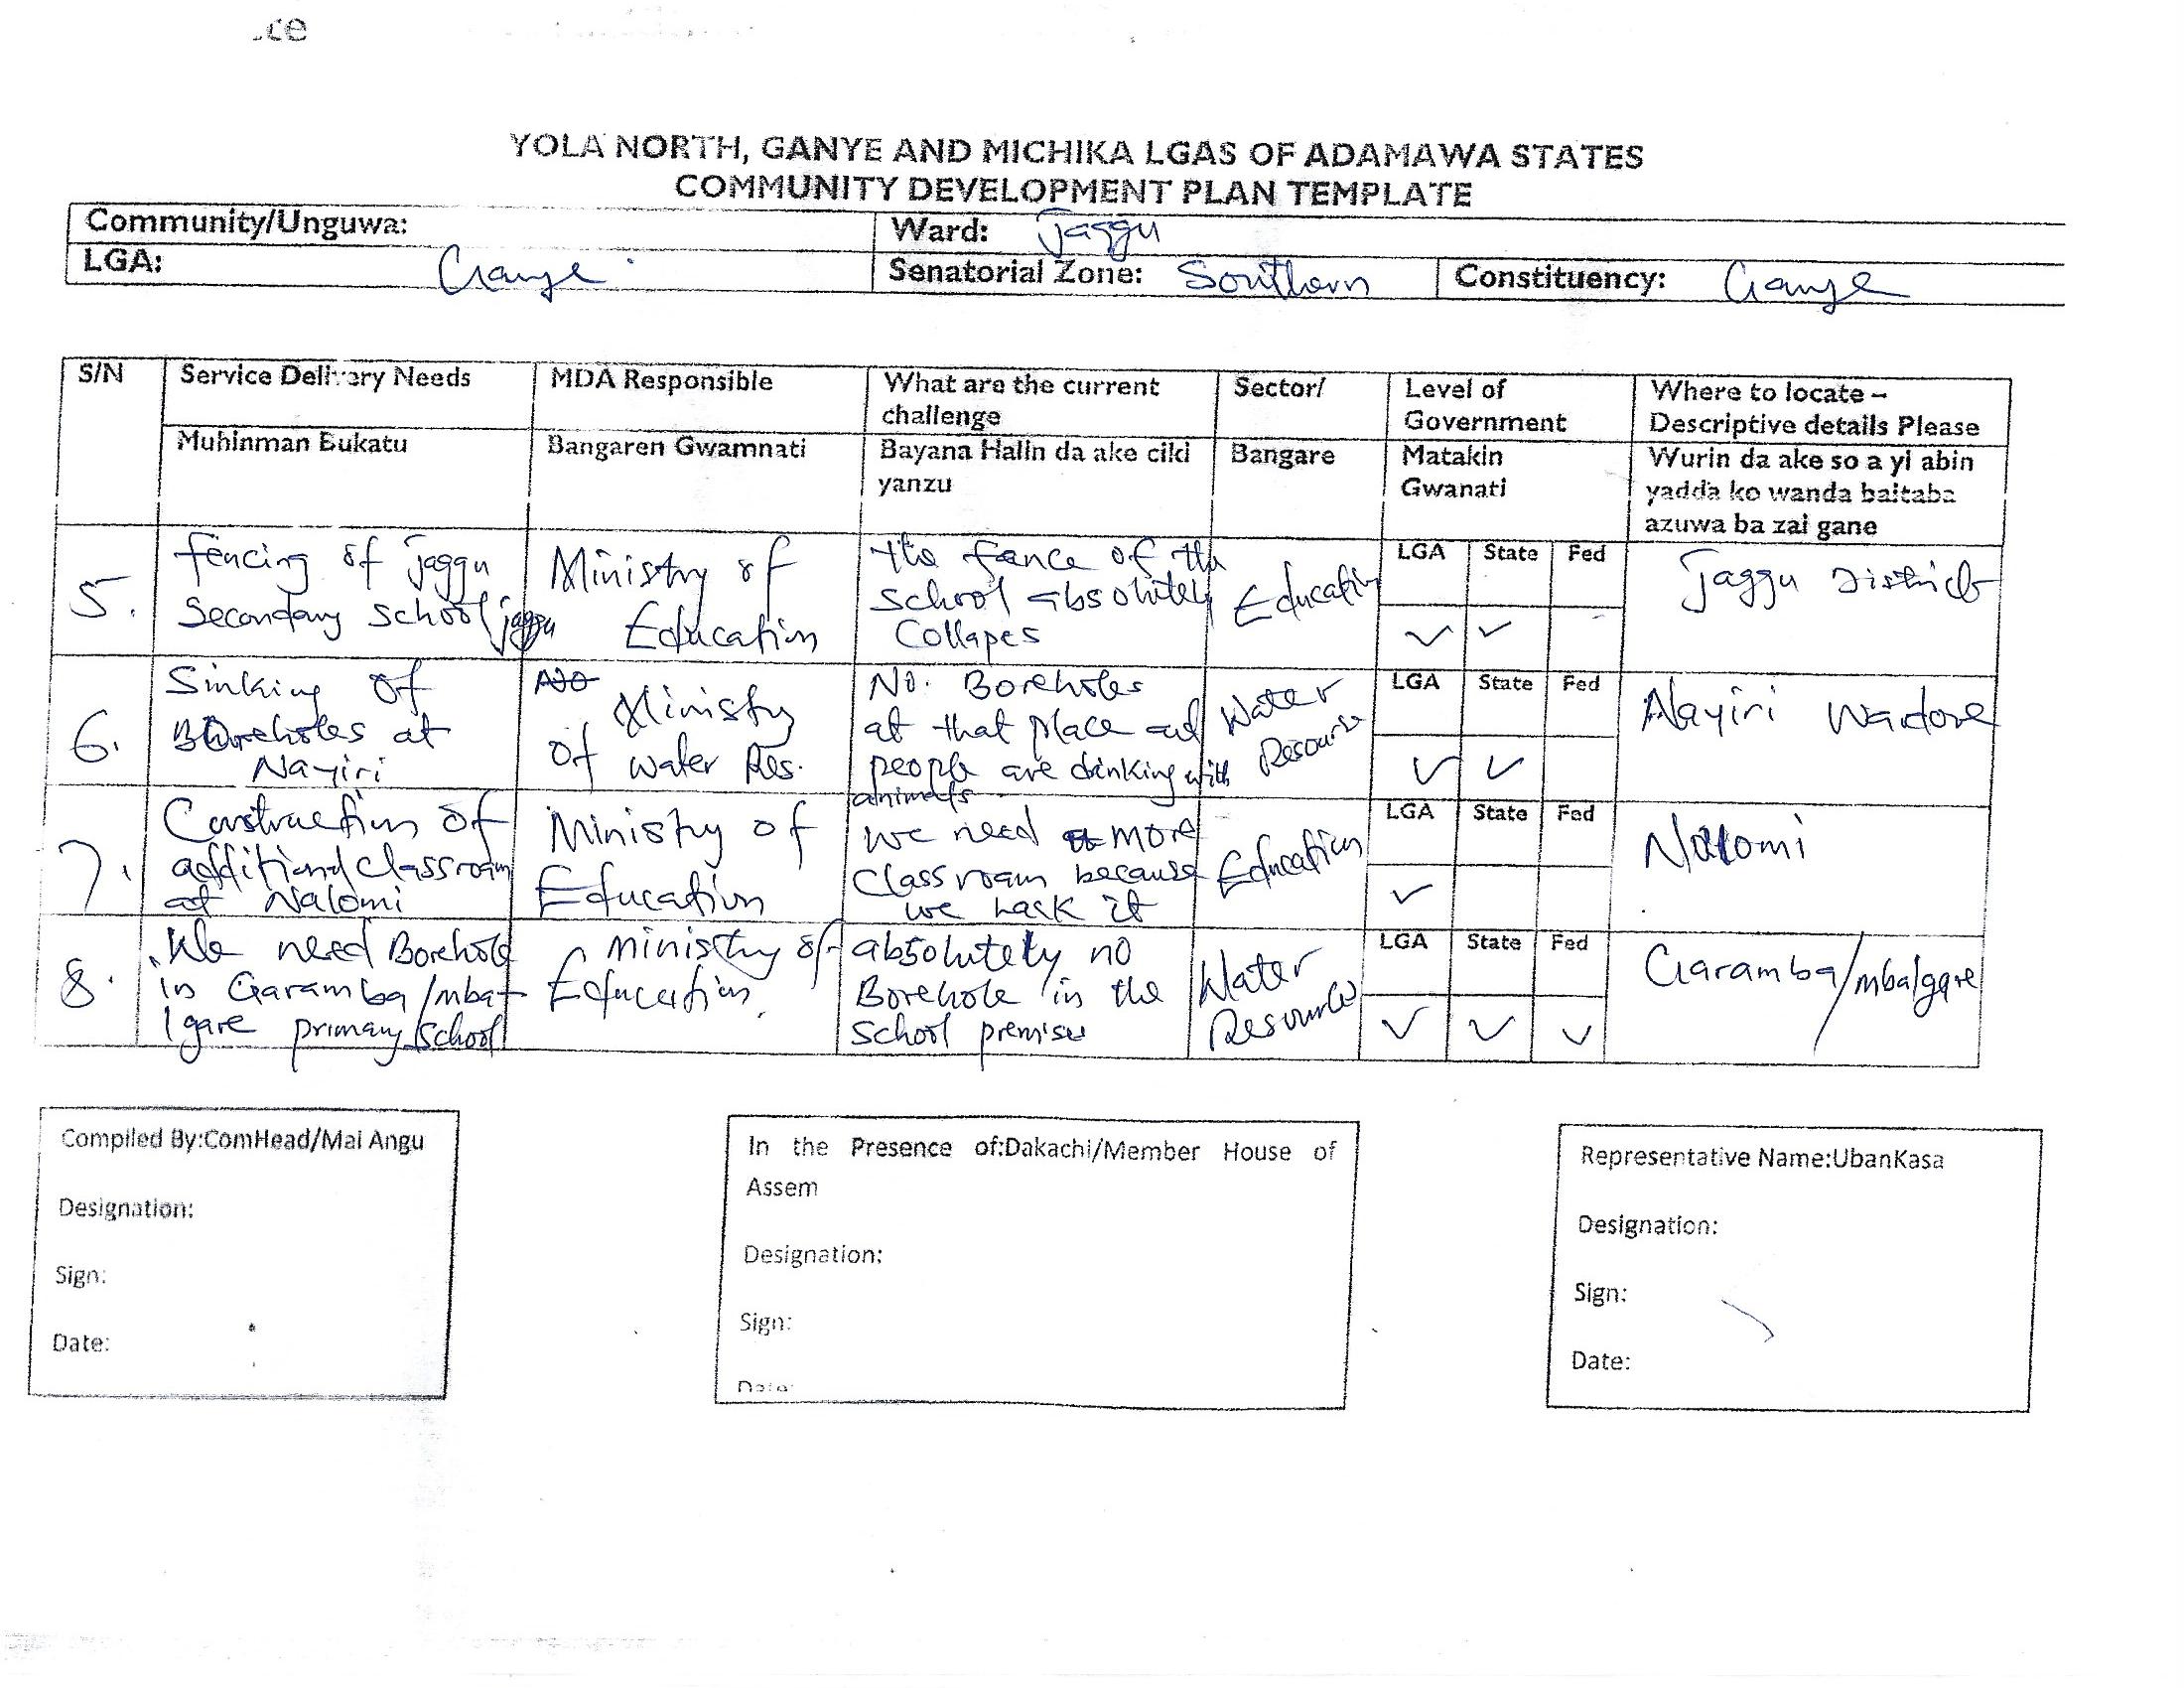 ce
YOLA NORTH, GANYE AND MICHIKA LGAS OF ADAMAWA STATES
COMMUNITY DEVELOPMENT PLAN TEMPLATE
Community/Unguwa:
Ward: Jaggu
LGA: Ganye
Senatorial Zone: Southern
Constituency: Ganye
S/N
Service Delivery Needs
MDA Responsible
What are the current
challenge
Sector/
Level of
Government
Where to locate –
Descriptive details Please
Muhinman Bukatu
Bangaren Gwamnati
Bayana Halin da ake ciki
yanzu
Bangare
Matakin
Gwanati
Wurin da ake so a yi abin
yadda ko wanda baitaba
azuwa ba zai gane
5.
fencing of Jaggu
Secondary School jaggu
Ministry of
Education
the fance of the
school absolutely
Collapes
Education
LGA State Fed
✓ ✓
Jaggu District
6.
Sinking of
Boreholes at
Nayiri
Ministry
of water Res.
No. Boreholes
at that place and
people are drinking with
animals
Water
Resource
LGA State Fed
✓ ✓
Nayiri Wadore
7.
Construction of
additional classroom
at Nalomi
Ministry of
Education
we need more
Classroom because
we Lack it
Education
LGA State Fed
✓
Nalomi
8.
We need Borehole
in Garamba/mba-
lgare primary School
ministry of
Education.
absolutely no
Borehole in the
School premise
Water
Resource
LGA State Fed
✓ ✓ ✓
Garamba/mbalgare
Compiled By:ComHead/Mai Angu
Designation:
Sign:
Date:
In the Presence of:Dakachi/Member House of
Assem
Designation:
Sign:
Date:
Representative Name:UbanKasa
Designation:
Sign:
Date: